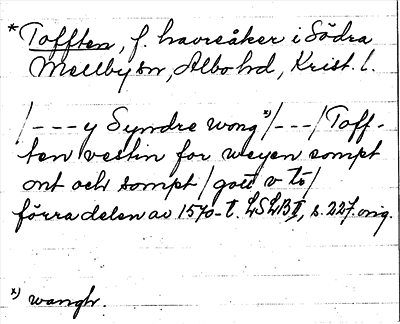 * Tofften, f. havreåker i Södra
Mellby sn, Albo hd, Krist. l.
/--- y Syndre wong x)/---/ Toff-
ten vestin for weyen sompt
ont och sompt / gott v to /
förra delen av 1570-t. LSLB I, s. 227. orig.
x) wangh.